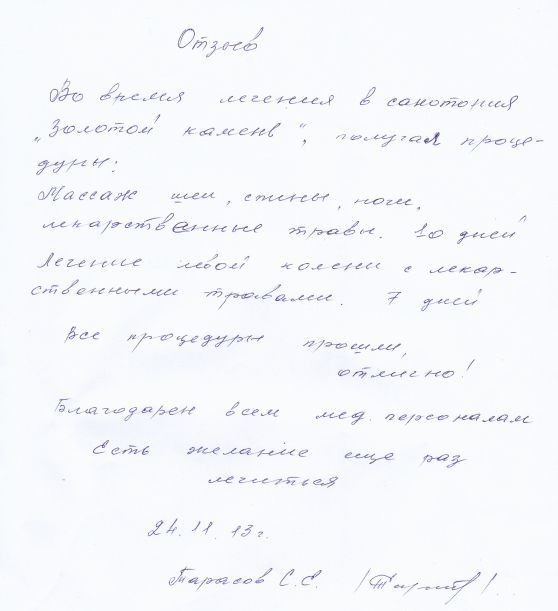 Отзыв
Во время лечения в санотория
"Золотой камень", получал проце-
дуры:
Массаж шеи, спины, ноги,
лекарственные травы. 10 дней
Лечение левой колени с лекар-
ственными травами. 7 дней
Все процедуры прошли,
отлично!
Благодарен всем мед. персоналам
Есть желание еще раз
лечиться
24.11.13г.
Тарасов С.Е.